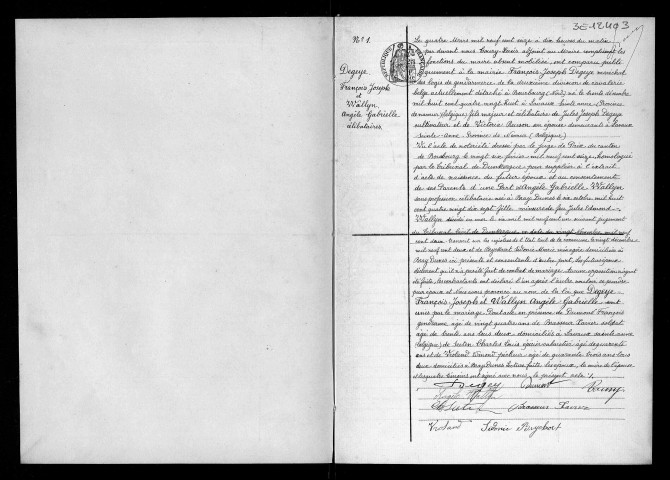 3E 12403
N° 1.
Degeye
François Joseph
et
Wallyn
Angèle Gabrielle
célibataires.
Le quatre Mars mil neuf cent seize à dix heures du matin
par devant nous Louis adjoint au Maire remplissant les
fonctions du maire absent mobilisé, ont comparu publi
quement à la mairie François Joseph Degeye maréchal
des logis de gendarmerie de la deuxième division de cavalerie
belge actuellement détaché à Bourbourg (Nord) né le trente décembre
mil huit cent quatre vingt huit à Lavaux Sainte Anne (Province
de Namur, Belgique) fils majeur et célibataire de Jules Joseph Degeye
cultivateur et de Victoire son épouse demeurants à Lavaux
Sainte-Anne Province de Namur (Belgique)
Vu l'acte de notoriété dressé par le juge de Paix du canton
de Bourbourg le vingt six février mil neuf cent seize, homologué
par le tribunal de Dunkerque pour suppléer à l'extrait
d'acte de naissance du futur époux et au consentement
de ses Parents d'une Part et Angèle Gabrielle Wallyn
sans profession célibataire née à Bray Dunes le six octobre mil huit
cent quatre vingt dix sept fille mineure de feu Jules Edmond
Wallyn décédé en mer le six mai mil neuf cent un suivant jugement
du tribunal civil de Dunkerque en date du vingt Novembre mil neuf
cent deux transcrit sur les registres de l'Etat Civil de la commune le vingt décembre
mil neuf cent deux et de Ryckebort Sidonie Marie ménagère domiciliée à
Bray Dunes ici présente et consentante d'autre part. Les futurs époux
déclarent qu'il n'a pas été fait de contrat de mariage. Aucune opposition n'ayant
été faite, les contractants ont déclaré l'un après l'autre vouloir se prendre
pour époux et Nous avons prononcé au nom de la loi que Degeye
François Joseph et Wallyn Angèle Gabrielle sont
unis par le mariage. Dont acte en présence de Dumont François
gendarme âgé de vingt quatre ans de Brasseur Xavier soldat
âgé de trente ans tous deux domiciliés à Lavaux Sainte Anne
(Belgique) de Charles Louis âgé de quarante
ans et de Vroland Edmond pêcheur âgé de quarante trois ans tous
deux domiciliés à Bray Dunes. Lecture faite les époux, la mère de l'épouse
et les quatre témoins ont signé avec nous le présent acte.
Degey Dumont
Angèle Wally
Brasseur Xavier
Vroland Sidonie Ryckbort